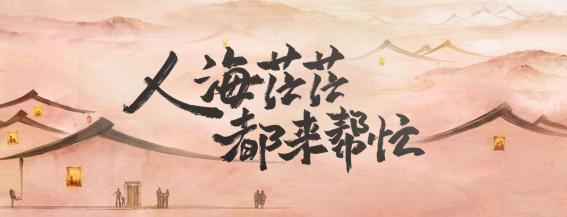 人海茫茫
都来帮忙